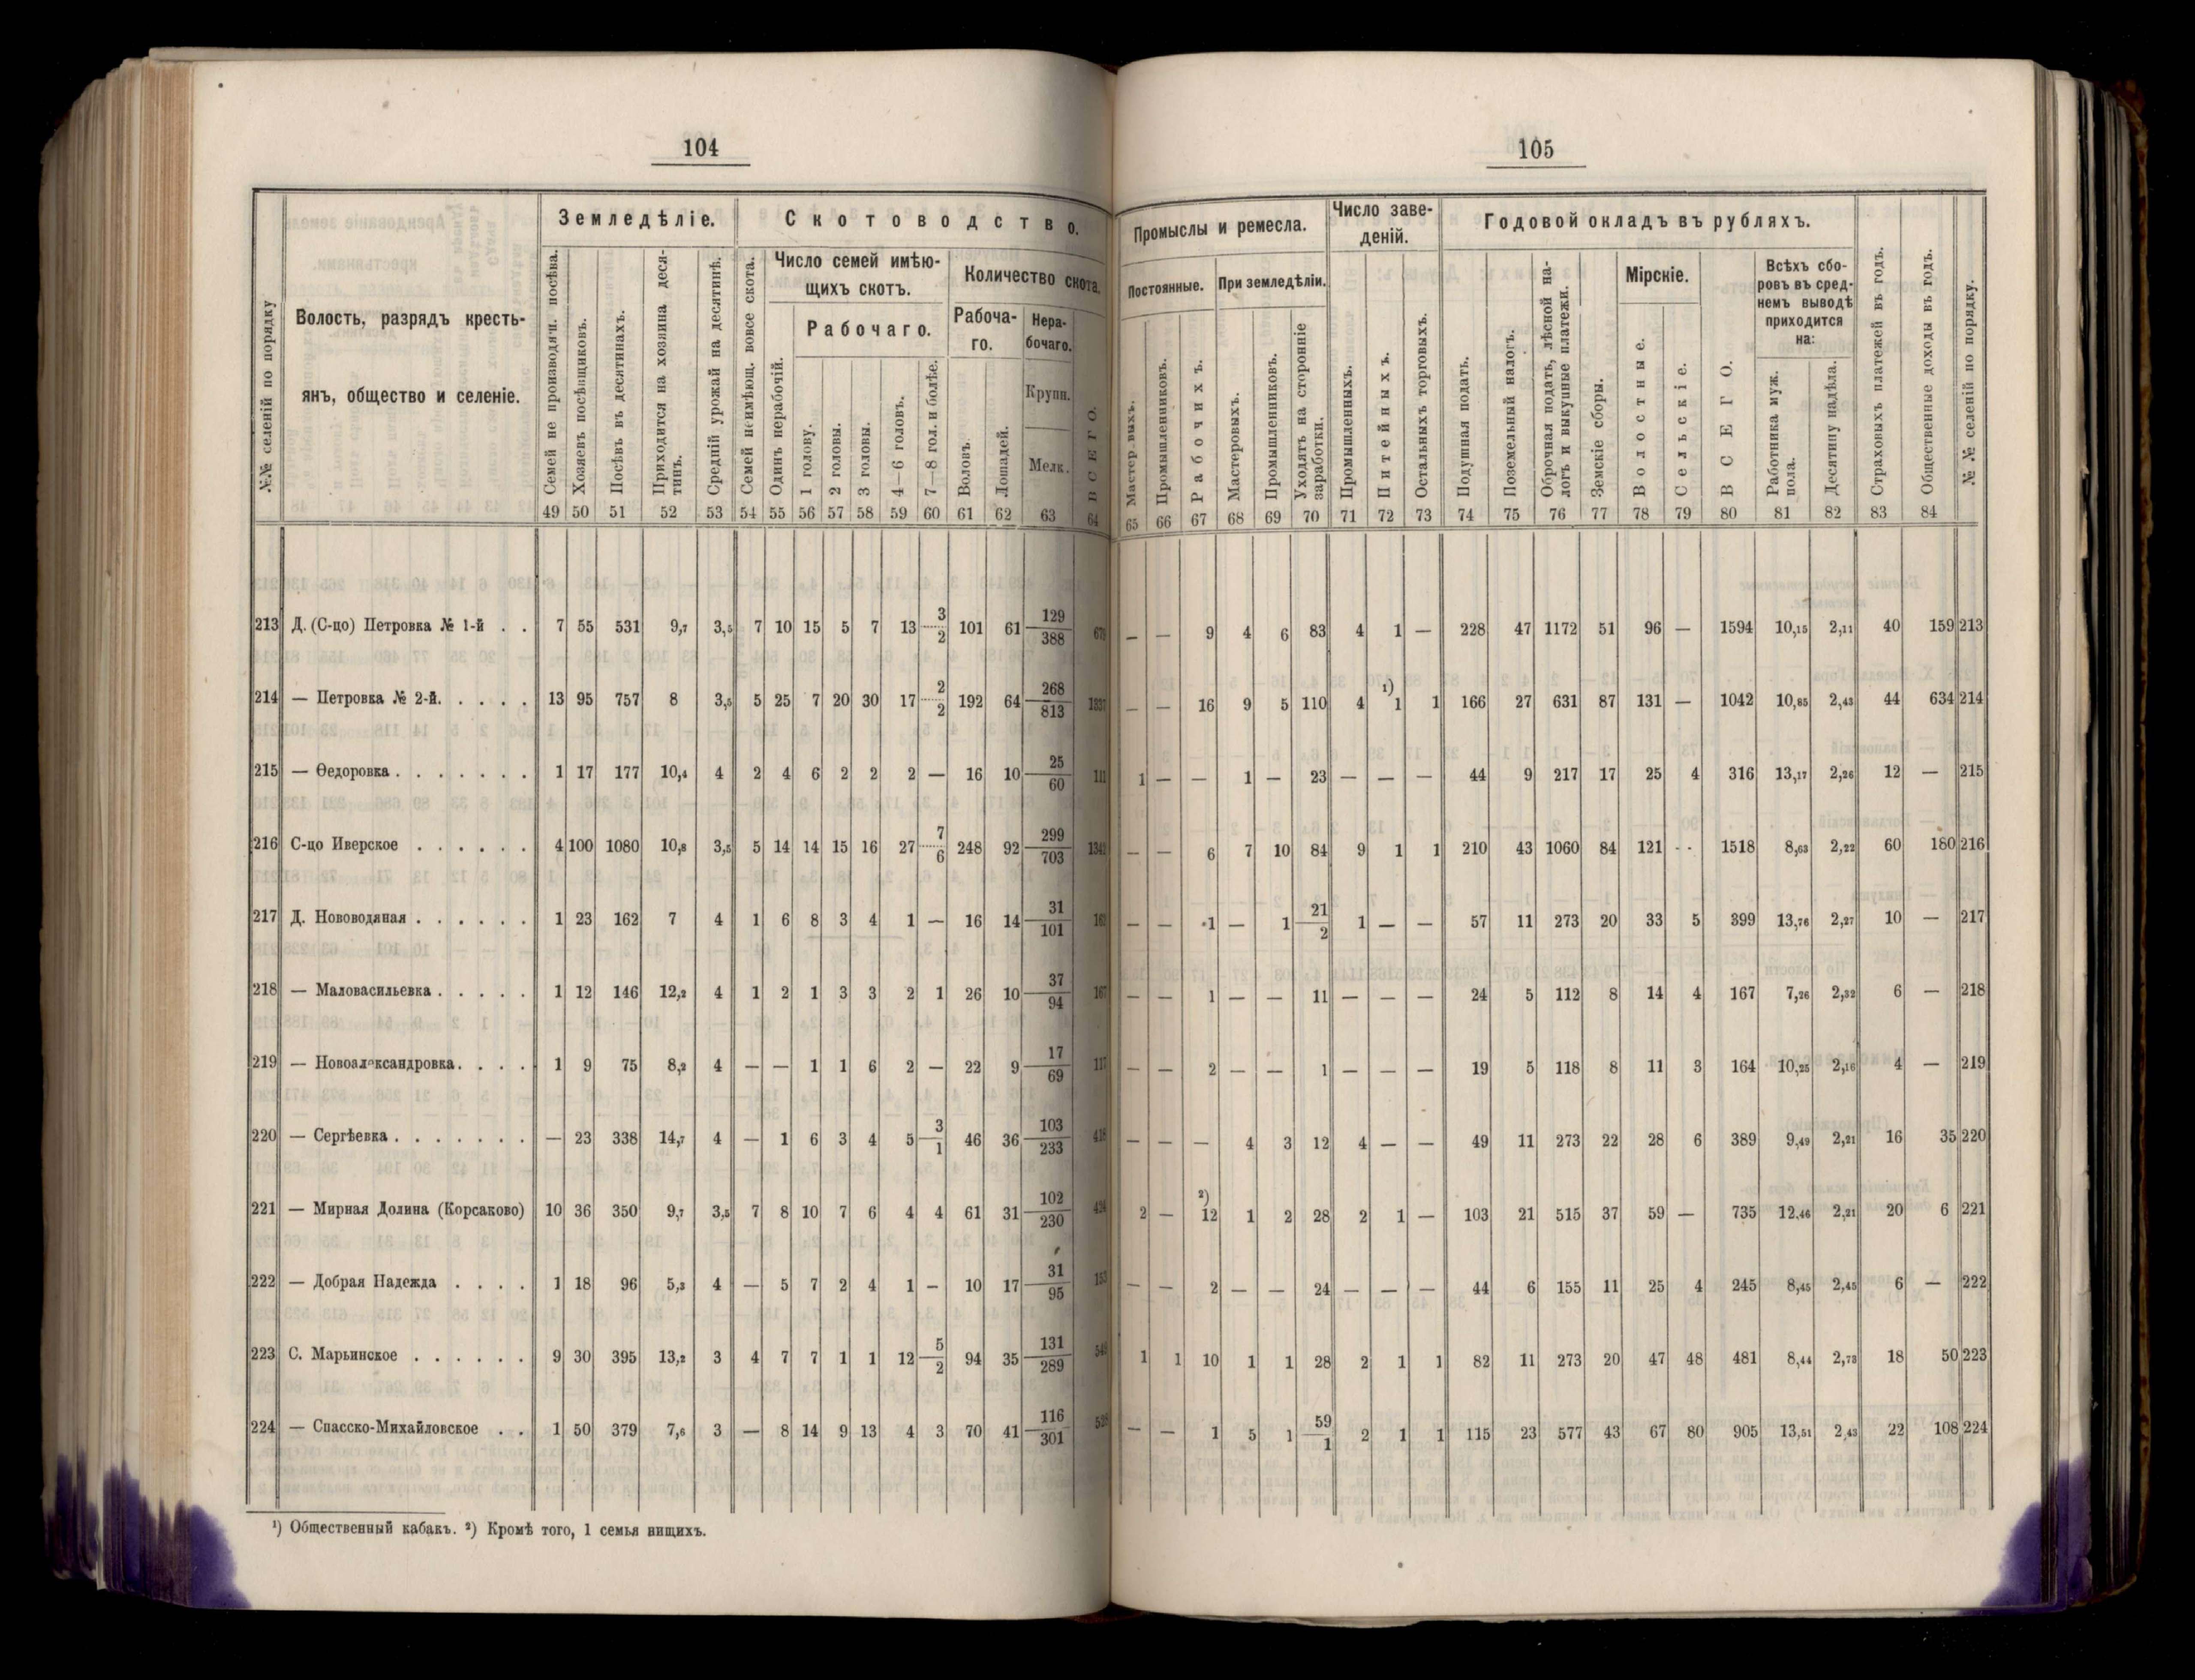 104
Земледѣліе. Скотоводство.
№№ селеній по порядку
Волость, разрядъ кресть-
янъ, общество и селеніе.
Семей не производящ. посѣва.
Хозяевъ посѣвщиковъ.
Посѣвъ въ десятинахъ.
Приходится на хозяина деся-
тинъ.
Средній урожай на десятинѣ.
Семей неимѣющ. вовсе скота.
Число семей имѣю-
щихъ скотъ.
Одинъ нерабочій.
Рабочаго.
1 голову.
2 головы.
3 головы.
4—6 головъ.
7—8 гол. и болѣе.
Количество скота.
Рабоча-
го.
Воловъ.
Лошадей.
Нера-
бочаго.
Крупн.
Мелк.
ВСЕГО.
49 50 51 52 53 54 55 56 57 58 59 60 61 62 63 64
213 Д. (С-цо) Петровка № 1-й . . 7 55 531 9,7 3,5 7 10 15 5 7 13 3/2 101 61 129/388
214 — Петровка № 2-й. . . . . 13 95 757 8 3,5 5 25 7 20 30 17 2/2 192 64 268/813 1337
215 — Ѳедоровка . . . . . . . 1 17 177 10,4 4 2 4 6 2 2 2 — 16 10 25/60 111
216 С-цо Иверское . . . . . . 4 100 1080 10,8 3,5 5 14 14 15 16 27 7/6 248 92 299/703 1342
217 Д. Нововодяная . . . . . . 1 23 162 7 4 1 6 8 3 4 1 — 16 14 31/101 162
218 — Маловасильевка . . . . . 1 12 146 12,2 4 1 2 1 3 3 2 1 26 10 37/94 167
219 — Новоалександровка. . . . 1 9 75 8,2 4 — — 1 1 6 2 — 22 9 17/69 117
220 — Сергѣевка . . . . . . . — 23 338 14,7 4 — 1 6 3 4 5 3/1 46 36 103/233 418
221 — Мирная Долина (Корсаково) 10 36 350 9,7 3,5 7 8 10 7 6 4 4 61 31 102/230 424
222 — Добрая Надежда . . . . 1 18 96 5,3 4 — 5 7 2 4 1 — 10 17 31/95 153
223 С. Марьинское . . . . . . 9 30 395 13,2 3 4 7 7 1 1 12 5/2 94 35 131/289
224 — Спасско-Михайловское . . 1 50 379 7,6 3 — 8 14 9 13 4 3 70 41 116/301 528
¹) Общественный кабакъ. ²) Кромѣ того, 1 семья нищихъ.
105
Промыслы и ремесла. Число заве-
деній. Годовой окладъ въ рубляхъ.
Постоянные.
Мастеровыхъ.
Промышленниковъ.
Рабочихъ.
При земледѣліи.
Мастеровыхъ.
Промышленниковъ.
Уходятъ на сторонніе
заработки.
Промышленныхъ.
Питейныхъ.
Остальныхъ торговыхъ.
Подушная подать.
Поземельный налогъ.
Оброчная подать, лѣсной на-
логъ и выкупные платежи.
Земскіе сборы.
Мірскіе.
Волостные.
Сельскіе.
ВСЕГО.
Всѣхъ сбо-
ровъ въ сред-
немъ выводѣ
приходится
на:
Работника муж.
пола.
Десятину надѣла.
Страховыхъ платежей въ годъ.
Общественные доходы въ годъ.
№ № селеній по порядку.
65 66 67 68 69 70 71 72 73 74 75 76 77 78 79 80 81 82 83 84
— — 9 4 6 83 4 1 — 228 47 1172 51 96 — 1594 10,15 2,11 40 159 213
— — 16 9 5 110 4 ¹) 1 1 166 27 631 87 131 — 1042 10,85 2,43 44 634 214
1 — — 1 — 23 — — — 44 9 217 17 25 4 316 13,17 2,26 12 — 215
— — 6 7 10 84 9 1 1 210 43 1060 84 121 - - 1518 8,63 2,22 60 180 216
— — 1 — 1 21/2 1 — — 57 11 273 20 33 5 399 13,76 2,27 10 — 217
— — 1 — — 11 — — — 24 5 112 8 14 4 167 7,26 2,32 6 — 218
— — 2 — — 1 — — — 19 5 118 8 11 3 164 10,25 2,16 4 — 219
— — — 4 3 12 4 — — 49 11 273 22 28 6 389 9,49 2,21 16 35 220
2 — ²) 12 1 2 28 2 1 — 103 21 515 37 59 — 735 12,46 2,21 20 6 221
— — 2 — — 24 — — — 44 6 155 11 25 4 245 8,45 2,45 6 — 222
1 1 10 1 1 28 2 1 1 82 11 273 20 47 48 481 8,44 2,73 18 50 223
— — 1 5 1 59/1 2 1 1 115 23 577 43 67 80 905 13,51 2,43 22 108 224